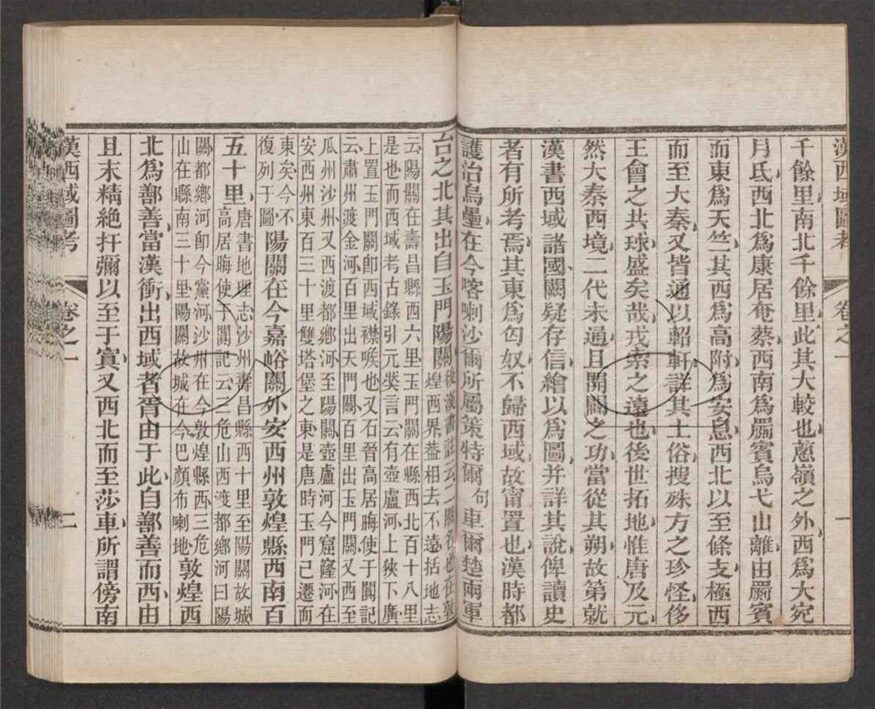 漢西域圖考 卷之一 一
千餘里南北千餘里此其大較也蔥嶺之外西爲大宛
月氏西北爲康居奄蔡西南爲罽賓烏弋山離由罽賓
而東爲天竺其西爲高附爲安息西北以至條支極西
而至大秦又皆通以軺軒詳其土俗搜殊方之珍怪侈
王會之共球盛矣哉戎索之遠也後世拓地惟唐及元
然大秦西境二代未通且開闢之功當從其朔故第就
漢書西域諸國闕疑存信繪以爲圖并詳其說俾讀史
者有所考焉其東爲匈奴不歸西域故甯置也漢時都
護治烏壘在今喀喇沙爾所屬策特爾句車爾楚兩軍
台之北其出自玉門陽關
後漢書註云二關俱在敦
煌西界葢相去不遠括地志
云陽關在壽昌縣西六里玉門關在縣西北百十八里
是也而西域考古錄引元奘言云有壺盧河上狹下廣
上置玉門關卽西域襟喉也又石晉高居晦使于闐記
云肅州渡金河百里出天門關百里出玉門關又西至
瓜州沙州又西渡都鄉河至陽關壺盧河今窟窿河在
安西州東百三十里雙塔堡之東是唐時玉門已遷而
東矣今不
復列于圖
陽關在今嘉峪關外安西州敦煌縣西南百
五十里
唐書地理志沙州壽昌縣西十里至陽關故城
高居晦使于闐記云三危山西渡都鄉河曰陽
關都鄉河卽今黨河沙州在今敦煌縣西三危
山在縣南三十里陽關故城在今巴顏布喇地
敦煌西
北爲鄯善當漢衝出西域者胥由于此自鄯善而西由
且末精絕扞彌以至于窴又西北而至莎車所謂傍南
漢西域圖考 卷之一 二